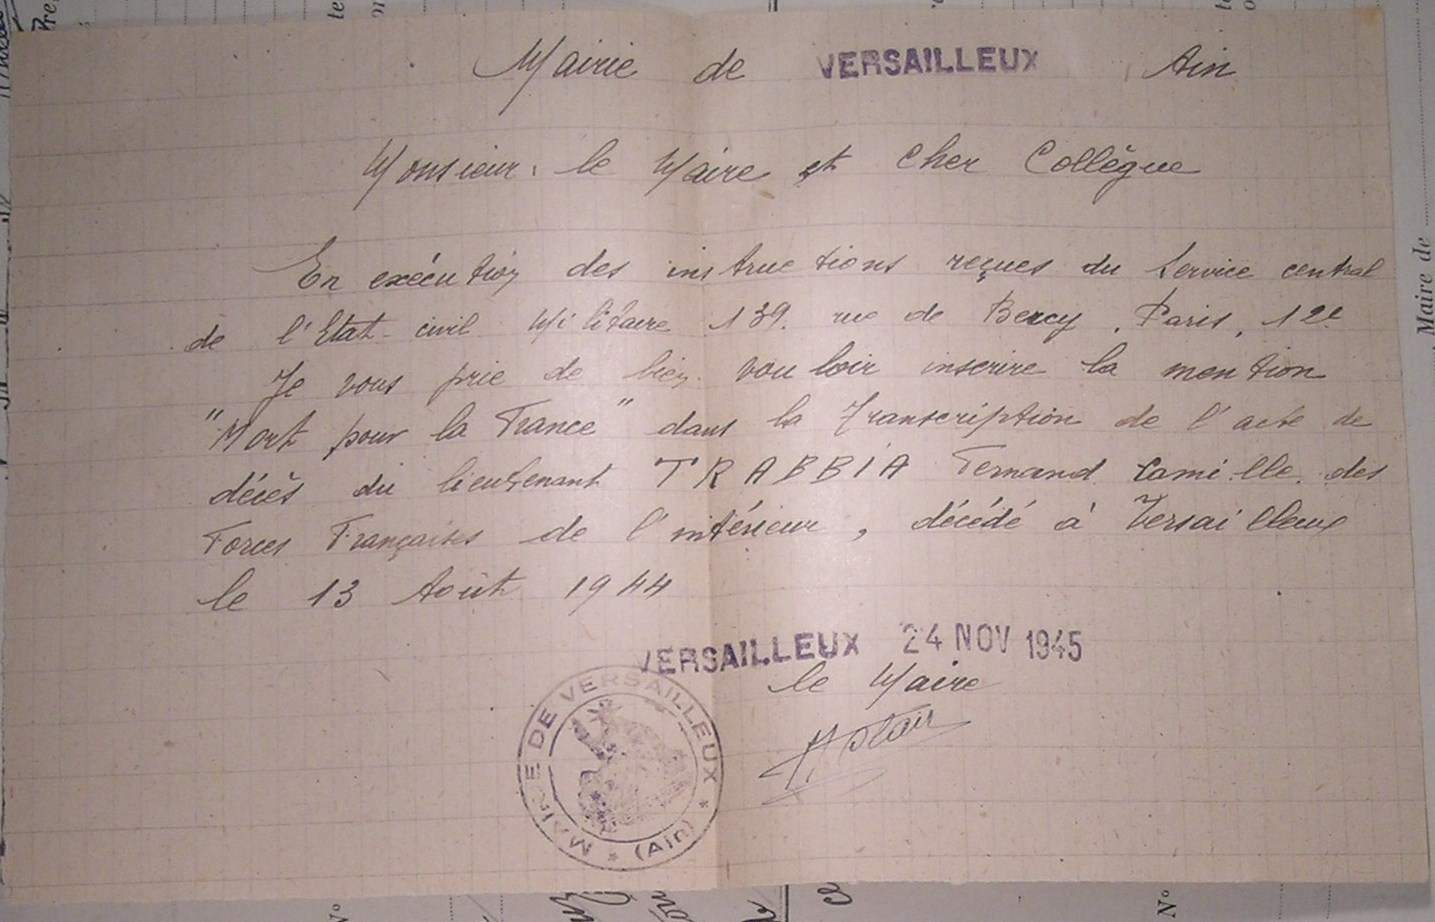 Mairie de VERSAILLEUX Ain
Monsieur le Maire et Cher Collègue
En exécution des instructions reçues du Service central
de l'Etat-civil Militaire 139. rue de Bercy, Paris, 12e
Je vous prie de bien vouloir inscrire la mention
"Mort pour la France" dans la Transcription de l'acte de
décès du lieutenant TRABBIA Fernand Camille des
Forces Françaises de l'intérieur, décédé à Versailleux
le 13 Août 1944
VERSAILLEUX 24 NOV 1945
le Maire
MAIRIE DE VERSAILLEUX * (Ain) *
Maire de
N°
N°